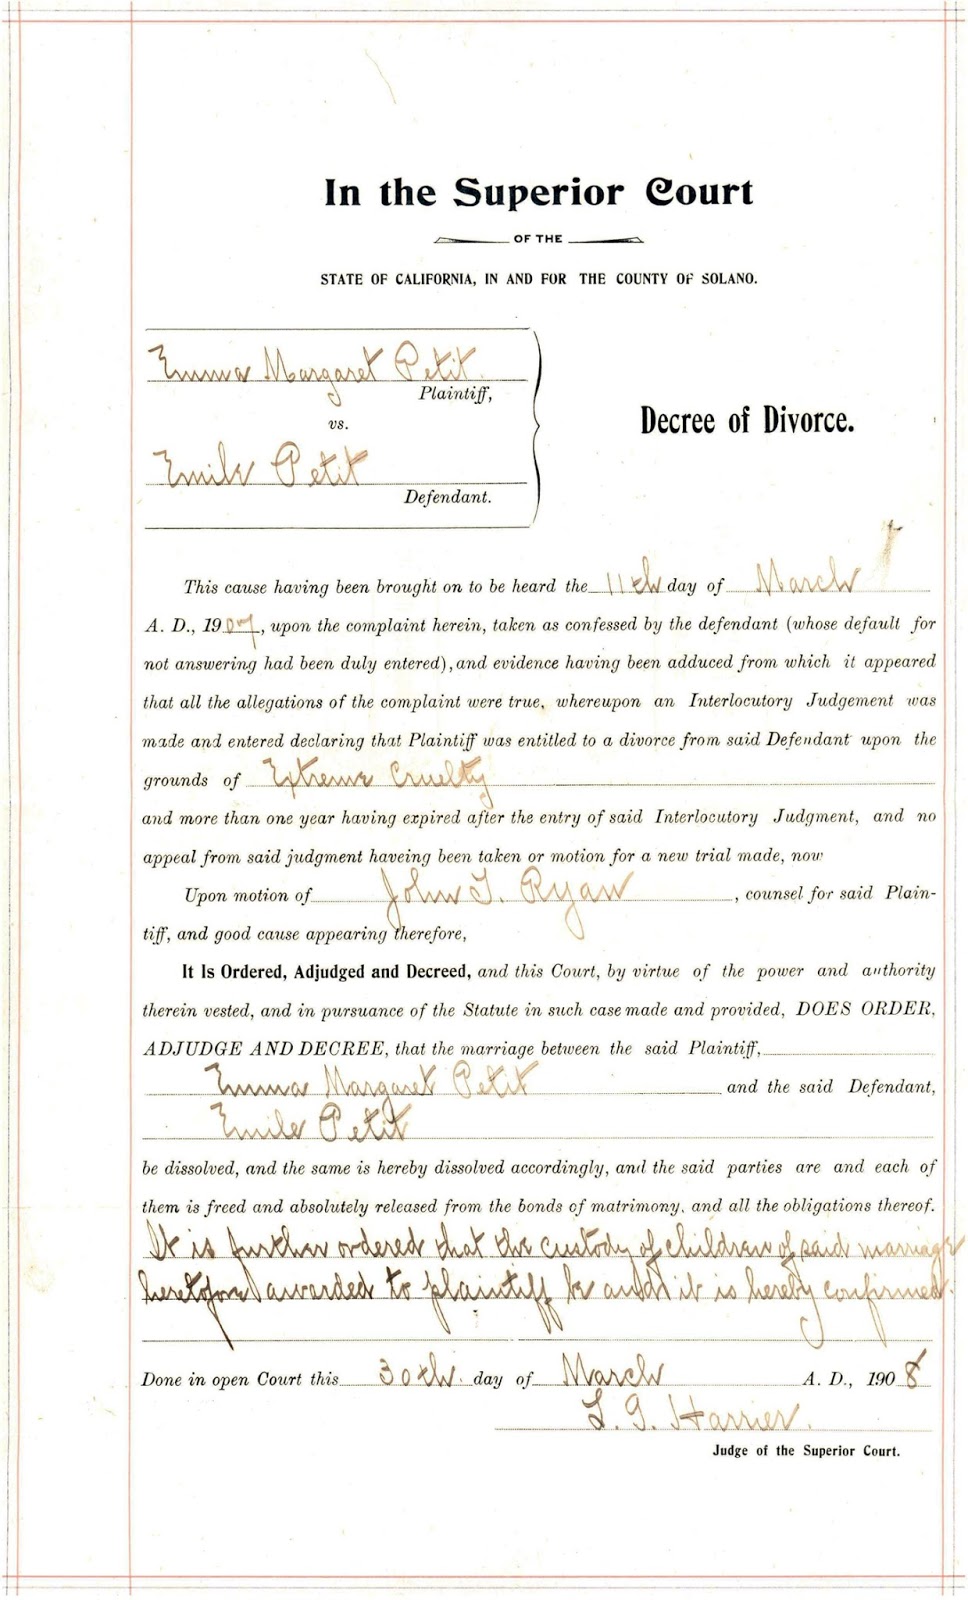 In the Superior Court
OF THE
STATE OF CALIFORNIA, IN AND FOR THE COUNTY OF SOLANO.
Emma Margaret Petit
Plaintiff,
vs.
Decree of Divorce.
Emile Petit
Defendant.
This cause having been brought on to be heard the 11th day of March
A. D., 1907, upon the complaint herein, taken as confessed by the defendant (whose default for
not answering had been duly entered), and evidence having been adduced from which it appeared
that all the allegations of the complaint were true, whereupon an Interlocutory Judgement was
made and entered declaring that Plaintiff was entitled to a divorce from said Defendant upon the
grounds of Extreme Cruelty
and more than one year having expired after the entry of said Interlocutory Judgment, and no
appeal from said judgment haveing been taken or motion for a new trial made, now
Upon motion of John T. Ryan, counsel for said Plain-
tiff, and good cause appearing therefore,
It Is Ordered, Adjudged and Decreed, and this Court, by virtue of the power and authority
therein vested, and in pursuance of the Statute in such case made and provided, DOES ORDER,
ADJUDGE AND DECREE, that the marriage between the said Plaintiff,
Emma Margaret Petit and the said Defendant,
Emile Petit
be dissolved, and the same is hereby dissolved accordingly, and the said parties are and each of
them is freed and absolutely released from the bonds of matrimony, and all the obligations thereof.
It is further ordered that the custody of children of said marriage
heretofore awarded to plaintiff be and it is hereby confirmed.
Done in open Court this 30th. day of March A. D., 1908
L. G. Harrier.
Judge of the Superior Court.